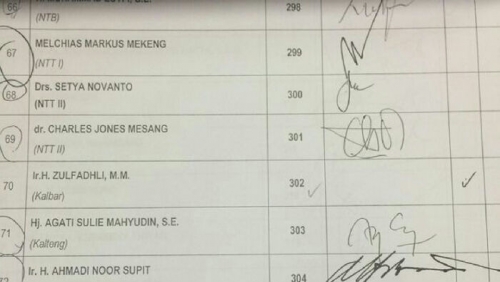 66
(NTB)
298
67
MELCHIAS MARKUS MEKENG
(NTT I)
299
68
Drs. SETYA NOVANTO
(NTT II)
300
69
dr. CHARLES JONES MESANG
(NTT II)
301
70
Ir.H. ZULFADHLI, M.M.
(Kalbar)
302
71
Hj. AGATI SULIE MAHYUDIN, S.E.
(Kalteng)
303
Ir. H. AHMADI NOOR SUPIT
304